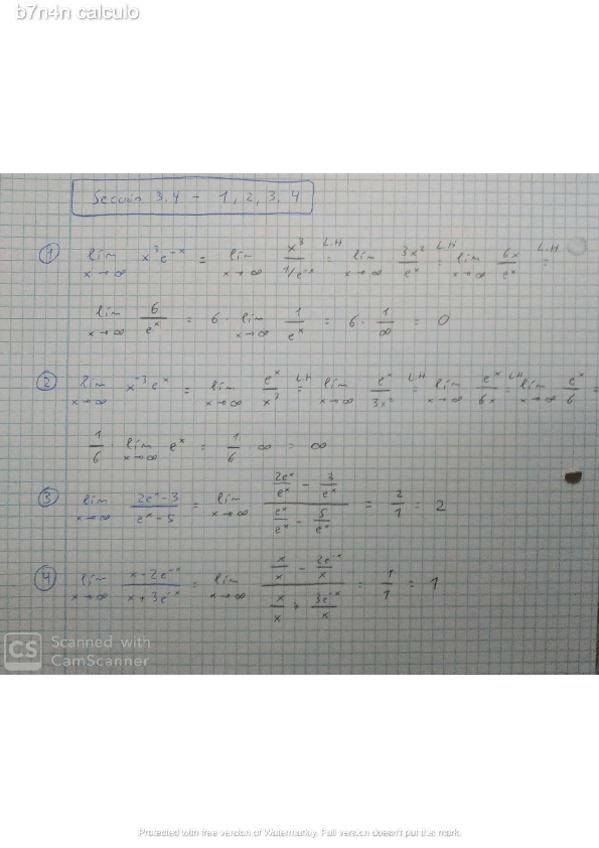 b7n4n calculo
Sección 3.4 - 1, 2, 3, 4
① lim x→∞ x³e⁻ˣ = lim x→∞ x³/(1/e⁻ˣ) L.H = lim x→∞ 3x²/eˣ L.H = lim x→∞ 6x/eˣ L.H =
lim x→∞ 6/eˣ = 6 · lim x→∞ 1/eˣ = 6 · 1/∞ = 0
② lim x→∞ x⁻³eˣ = lim x→∞ eˣ/x³ L.H = lim x→∞ eˣ/3x² L.H = lim x→∞ eˣ/6x L.H = lim x→∞ eˣ/6 =
1/6 · lim x→∞ eˣ = 1/6 · ∞ = ∞
③ lim x→∞ (2eˣ-3)/(eˣ-5) = lim x→∞ (2eˣ/eˣ - 3/eˣ)/(eˣ/eˣ - 5/eˣ) = 2/1 = 2
④ lim x→∞ (x-2e⁻ˣ)/(x+3e⁻ˣ) = lim x→∞ (x/x - 2e⁻ˣ/x)/(x/x + 3e⁻ˣ/x) = 1/1 = 1
CS Scanned with
CamScanner
Protected with free version of Watermarkly. Full version doesn't put this mark.